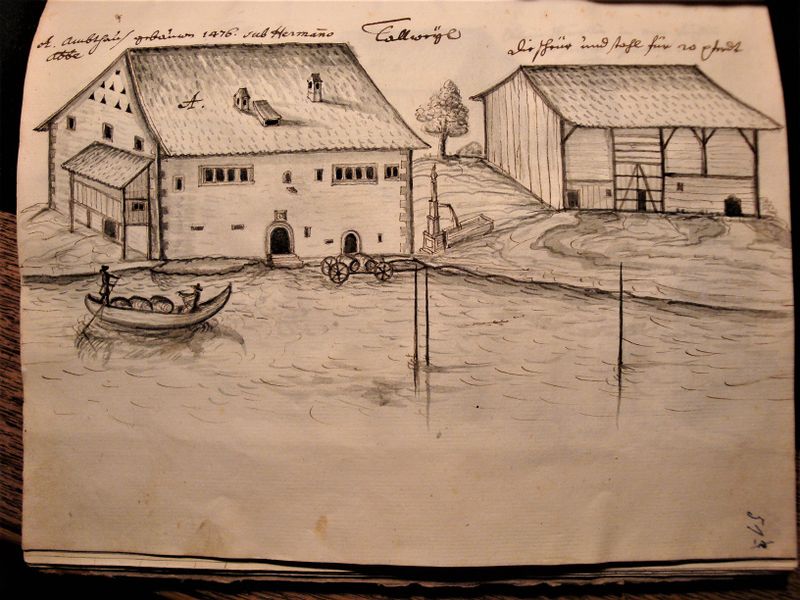 A. Ambthaus gebauwen 1476. sub Hermanno
Abbe
Tallwyl
Die schür und stahl für 20 pferdt
A.